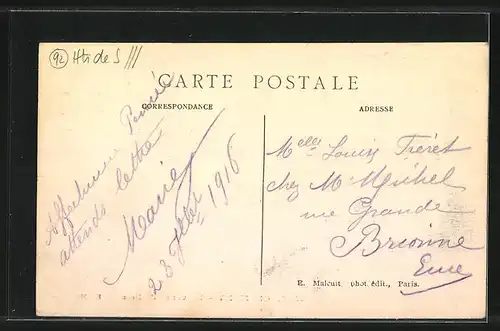 92 Hts de S
CARTE POSTALE
CORRESPONDANCE
ADRESSE
Affectueuse Pensée
attends lettre
Marie
28 1916
Melle Louise Fréret
chez Mr Michel
rue Grande
Brionne
Eure
E. Malcuit phot. édit., Paris.